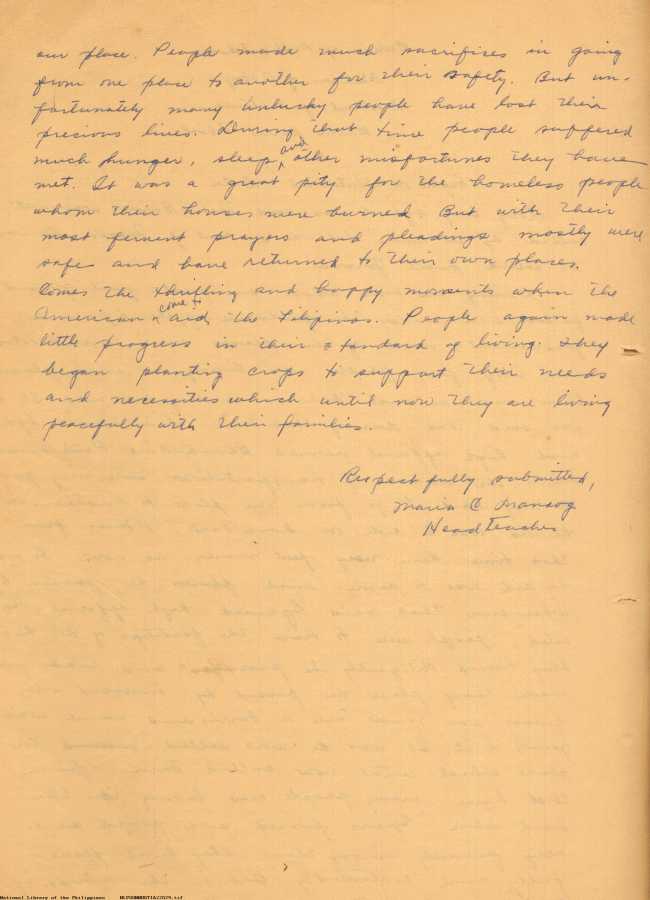 our place. People made much sacrifises in going
from one place to another for their safety. But un-
fortunately many unlucky people have lost their
precious lives. During that time people suffered
much hunger, sleep, and other misfortunes they have
met. It was a great pity for the homeless people
whom their houses were burned But with their
most fervent prayers and pleadings mostly were
safe and have returned to their own places.
Comes the thrilling and happy moments when the
American come to aid the Filipinos. People again made
little progress in their standard of living. They
began planting crops to support their needs
and necessities which until now they are living
peacefully with their families.
Respectfully submitted,
Maria C
Head teacher
National Library of the Philippines